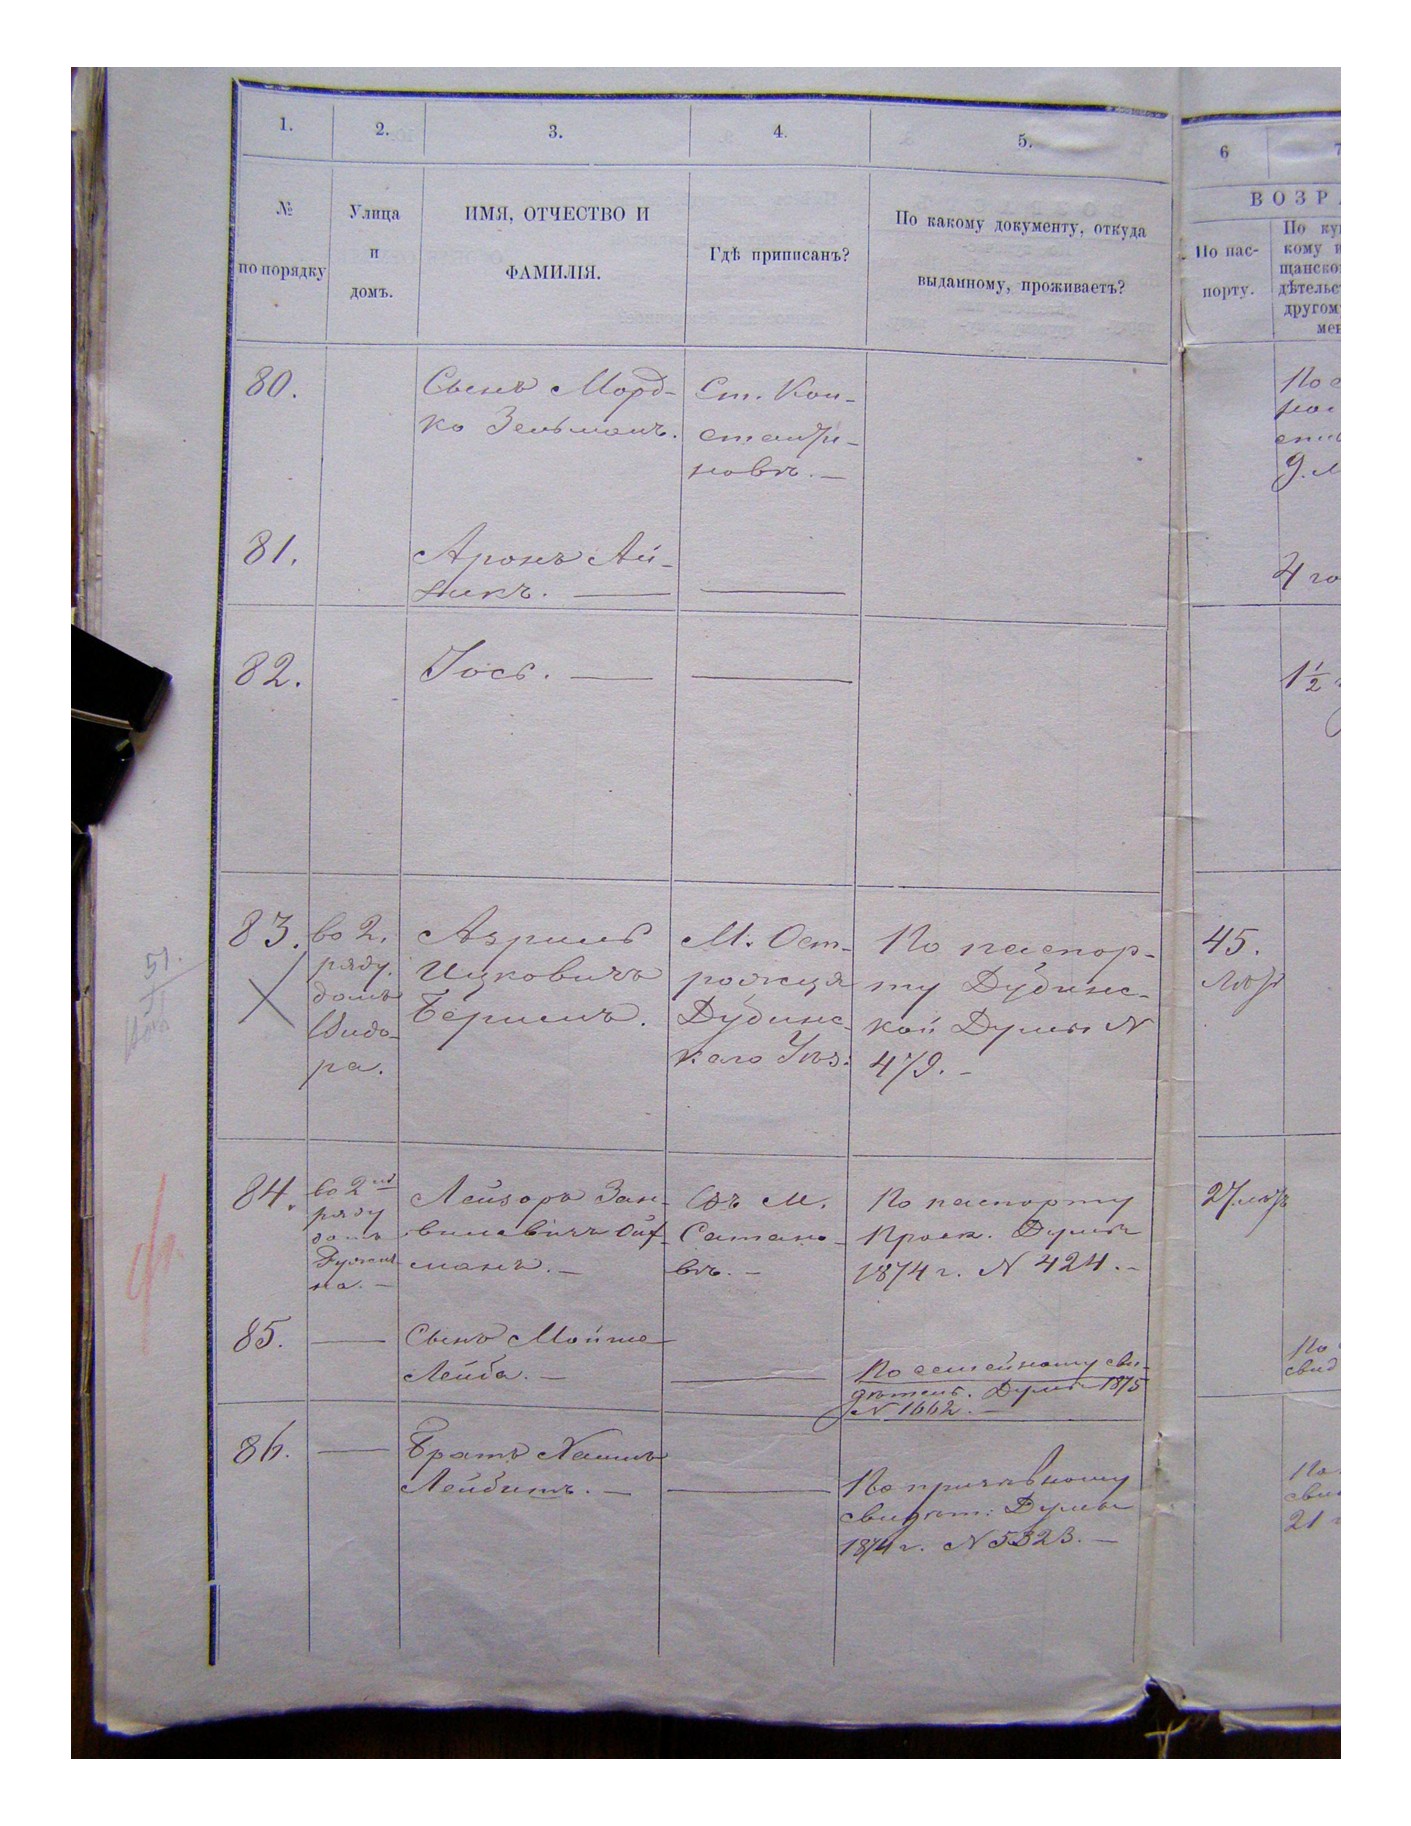 1.
2.
3.
4.
5.
6
7
№
по порядку
Улица
и
домъ.
ИМЯ, ОТЧЕСТВО И
ФАМИЛІЯ.
Гдѣ приписанъ?
По какому документу, откуда
выданному, проживаетъ?
ВОЗРА
По пас-
порту.
По ку
кому и
щанско
дѣтельс
другом
мен
80.
Сынъ Морд-
ко Зельманъ.
Ст. Кон-
станти-
новъ. —
81.
Аронъ Ай-
зикъ. —
4 го
82.
Іось. —
1½
83.
во 2.
ряду.
домъ
Шидо-
ра.
Азриль
Ицковичъ
Беришъ.
М. Ост-
рожца
Дубинс-
каго Уѣз:
По паспор-
ту Дубинс-
кой Думы N
479. -
45.
лѣтъ
51.
84.
во 2мъ
ряду
домъ
на. —
Лейзоръ Зан-
вилевичъ Ойх-
манъ. —
Въ М.
Сатано-
вѣ. —
По паспорту
Проск. Думы
1874 г. N 424. -
27 лѣтъ
85.
Сынъ Мойше
Лейба. —
По семейному сви-
дѣтель. Думы 1875
N 1662. —
По
свид
86.
Братъ Хаимъ
Лейбишъ. —
По призывному
свидѣт: Думы
1874 г. N 5323. —
По
сви
21